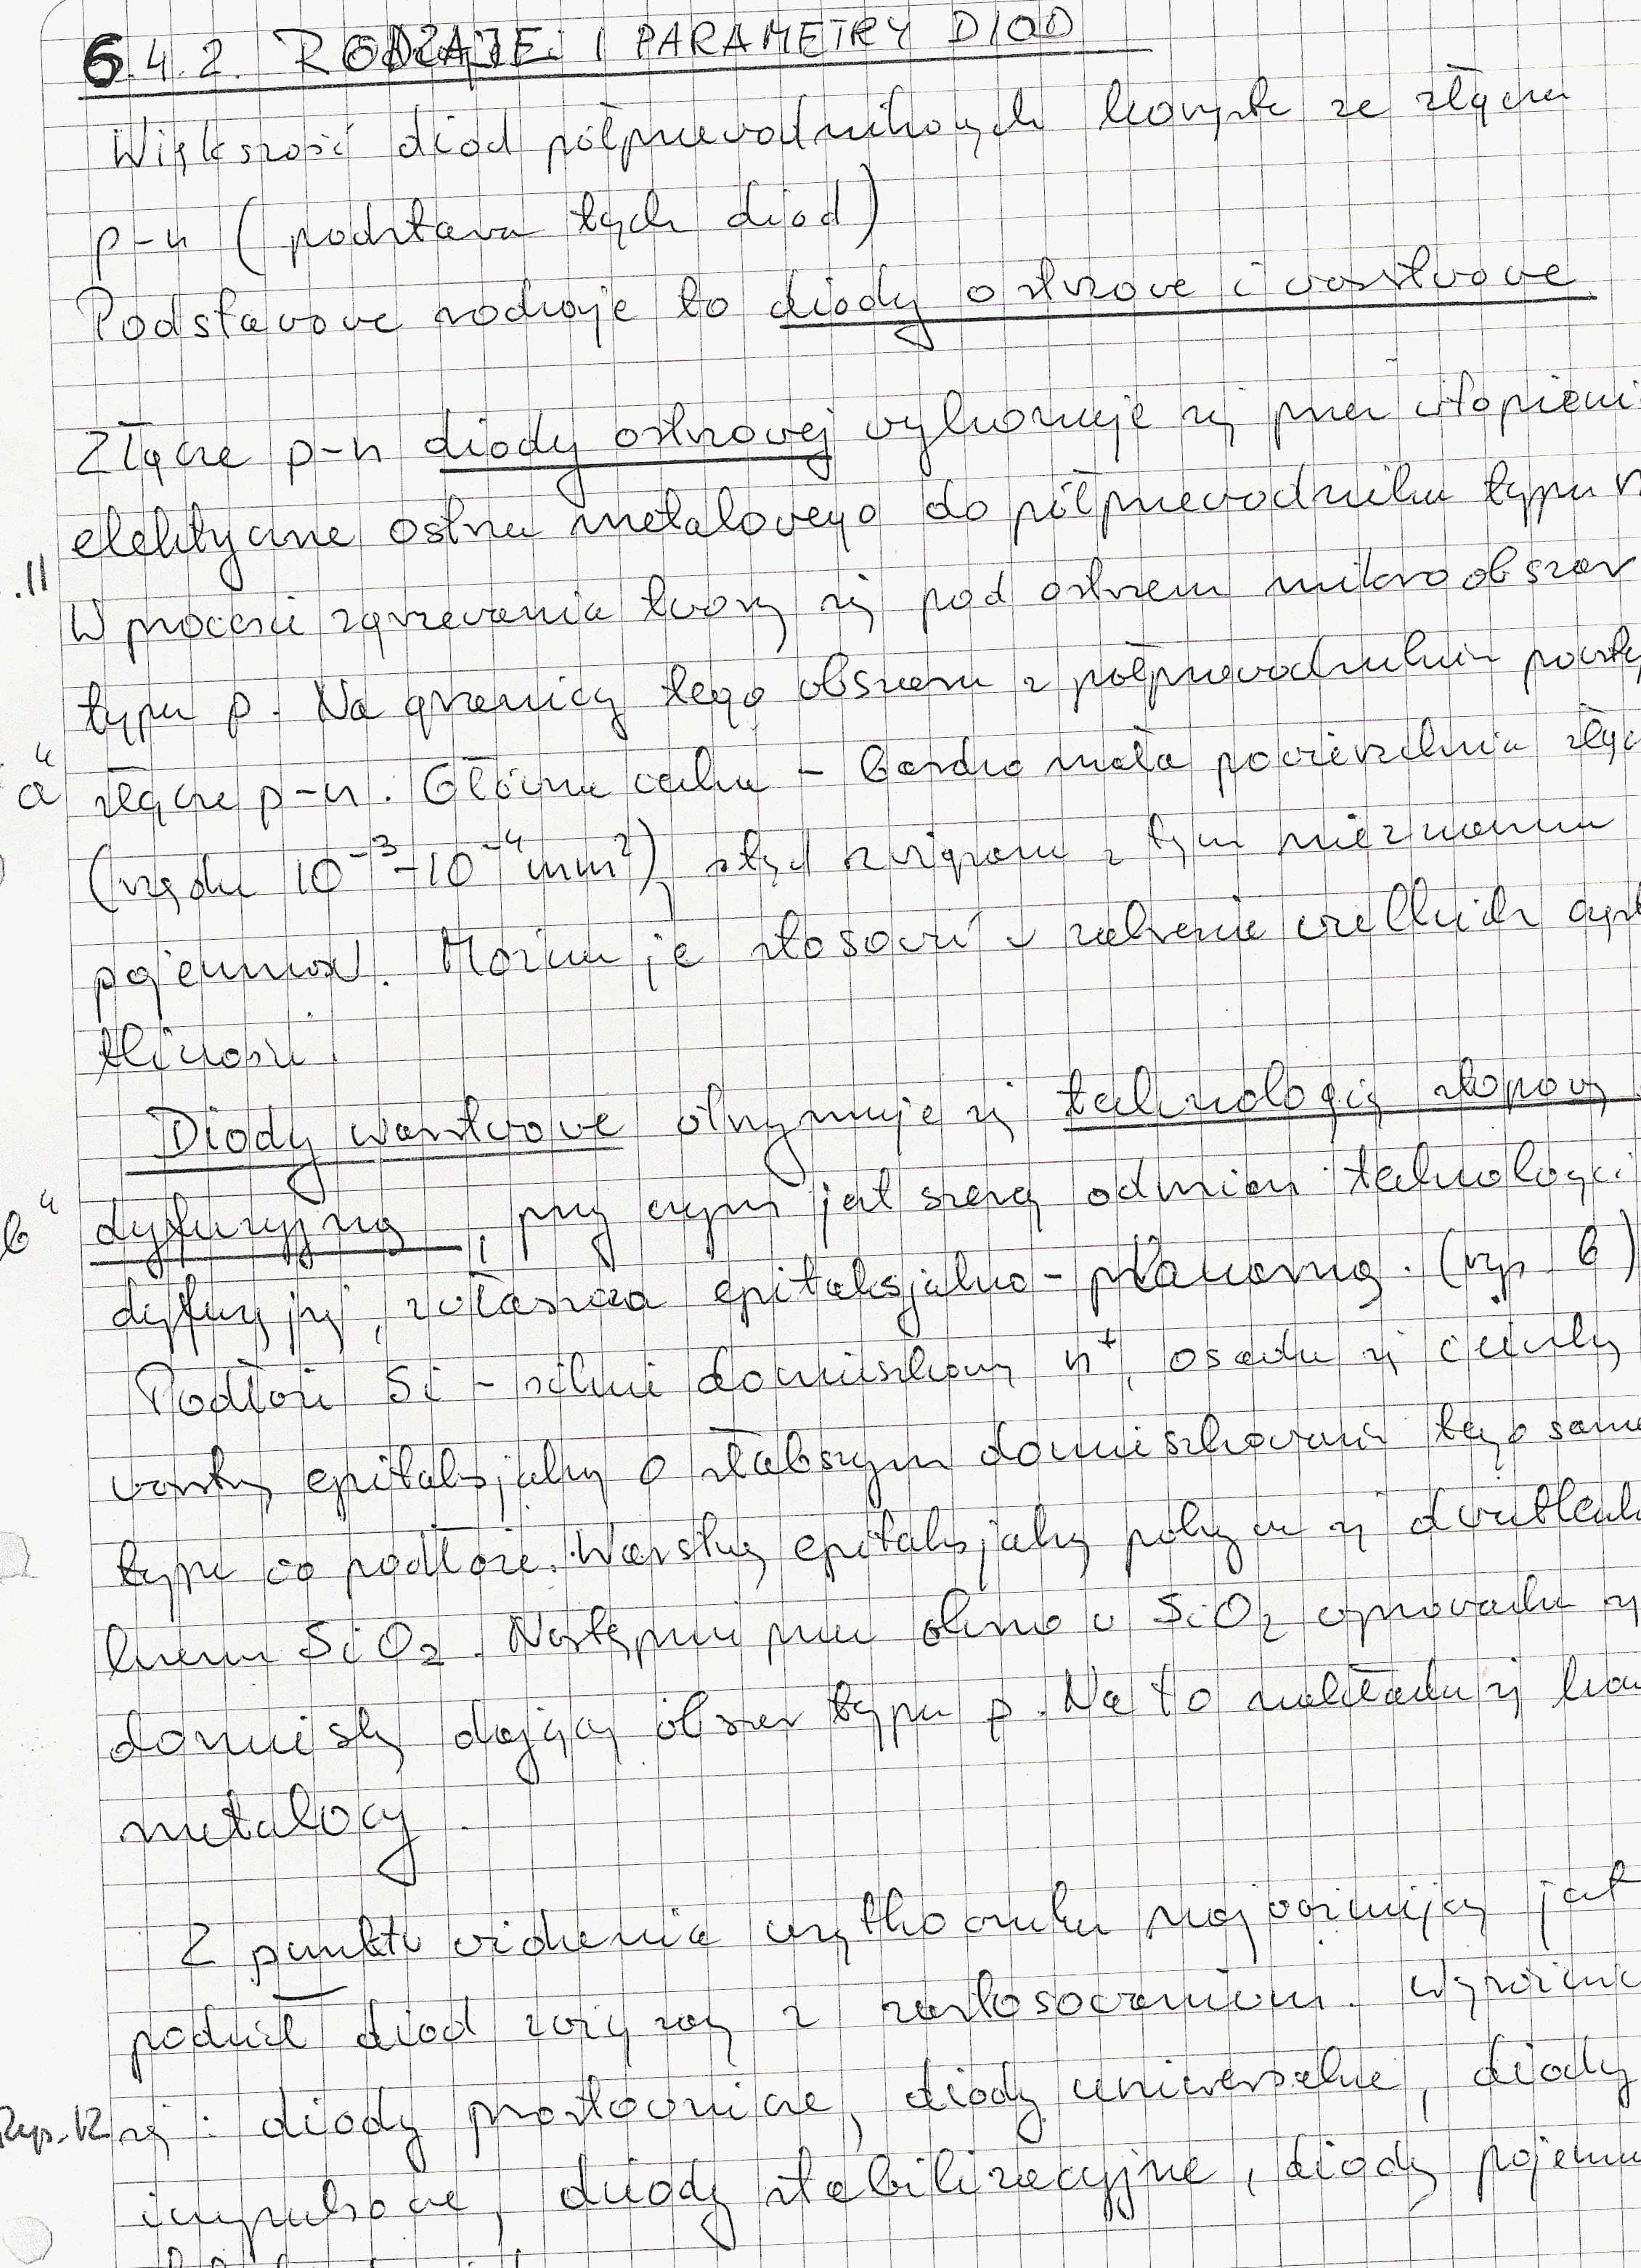 6.4.2. RODZAJE I PARAMETRY DIOD
Większość diod półprzewodnikowych korzysta ze złącza
p-n (podstawa tych diod)
Podstawowe rodzaje to diody ostrzowe i warstwowe.
Złącze p-n diody ostrzowej wykonuje się przez wtopieni
elektryczne ostrza metalowego do półprzewodnika typu n
W procesie zgrzewania tworzy się pod ostrzem mikroobszar
typu p. Na granicy tego obszaru z półprzewodnikiem powsta
a" złącze p-n. Główna cecha - bardzo mała powierzchnia złąc
(rzędu 10⁻³-10⁻⁴ mm²), stąd związana z tym nieznaczna
pojemność. Można je stosować w zakresie wielkich częst
tliwości.
Diody warstwowe otrzymuje się technologią stopową
b" dyfuzyjną, przy czym jest szereg odmian technologii
dyfuzyjnej, zwłaszcza epitaksjalno-planarna. (rys b)
Podłoże Si - silnie domieszkowany n⁺, osadza się cienką
warstwę epitaksjalną o słabszym domieszkowaniu tego same
typu co podłoże. Warstwę epitaksjalną pokrywa się dwutlen
kiem SiO₂. Następnie przez okno w SiO₂ wprowadza się
domieszkę dającą obszar typu p. Na to nakłada się kon
metalowy
Z punktu widzenia użytkownika najważniejszy jest
podział diod związany z zastosowaniem. Wyróżnia
Rys. 12 się: diody prostownicze, diody uniwersalne, diody
impulsowe, diody stabilizacyjne, diody pojemn